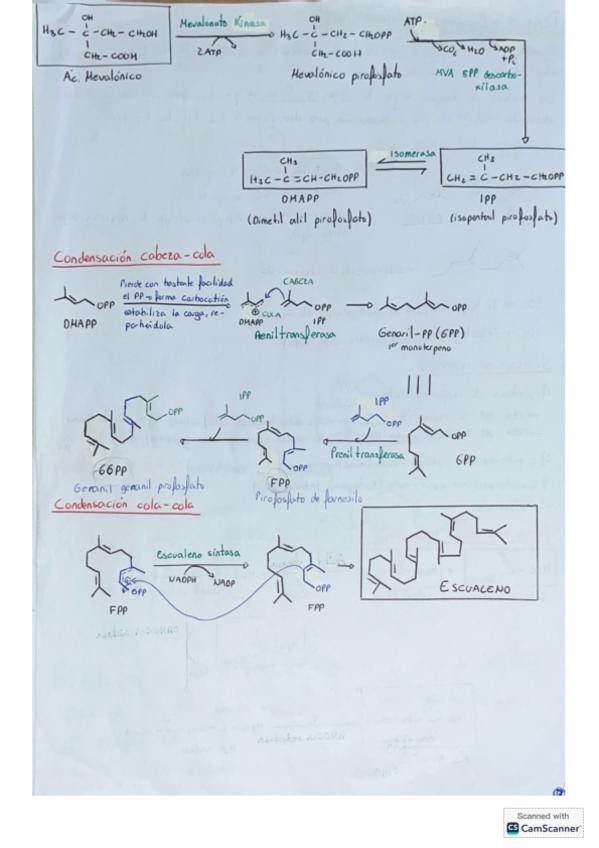 OH
H₃C – C – CH₂ – CH₂OH
CH₂ – COOH
Ác. Mevalónico
Mevalonato Kinasa
2ATP
OH
H₃C – C – CH₂ – CH₂OPP
CH₂ – COOH
Mevalónico pirofosfato
ATP
CO₂ H₂O ADP
+Pi
MVA 5PP descarbo-
xilasa
CH₃
H₃C – C = CH – CH₂OPP
DMAPP
(Dimetil alil pirofosfato)
isomerasa
CH₃
CH₂ = C – CH₂ – CH₂OPP
IPP
(isopentenil pirofosfato)
Condensación cabeza-cola
OPP
DMAPP
Pierde con bastante facilidad
el PP → forma carbocatión
estabiliza la carga, re-
partiéndola
CABEZA
COLA
OPP
DMAPP
IPP
Prenil transferasa
OPP
Geranil-PP (GPP)
1er monoterpeno
OPP
GGPP
Geranil geranil pirofosfato
IPP
OPP
OPP
FPP
Pirofosfato de farnesilo
IPP
OPP
Prenil transferasa
OPP
GPP
Condensación cola-cola
OPP
FPP
Escualeno sintasa
NADPH
NADP
OPP
FPP
ESCUALENO
Scanned with
CS CamScanner